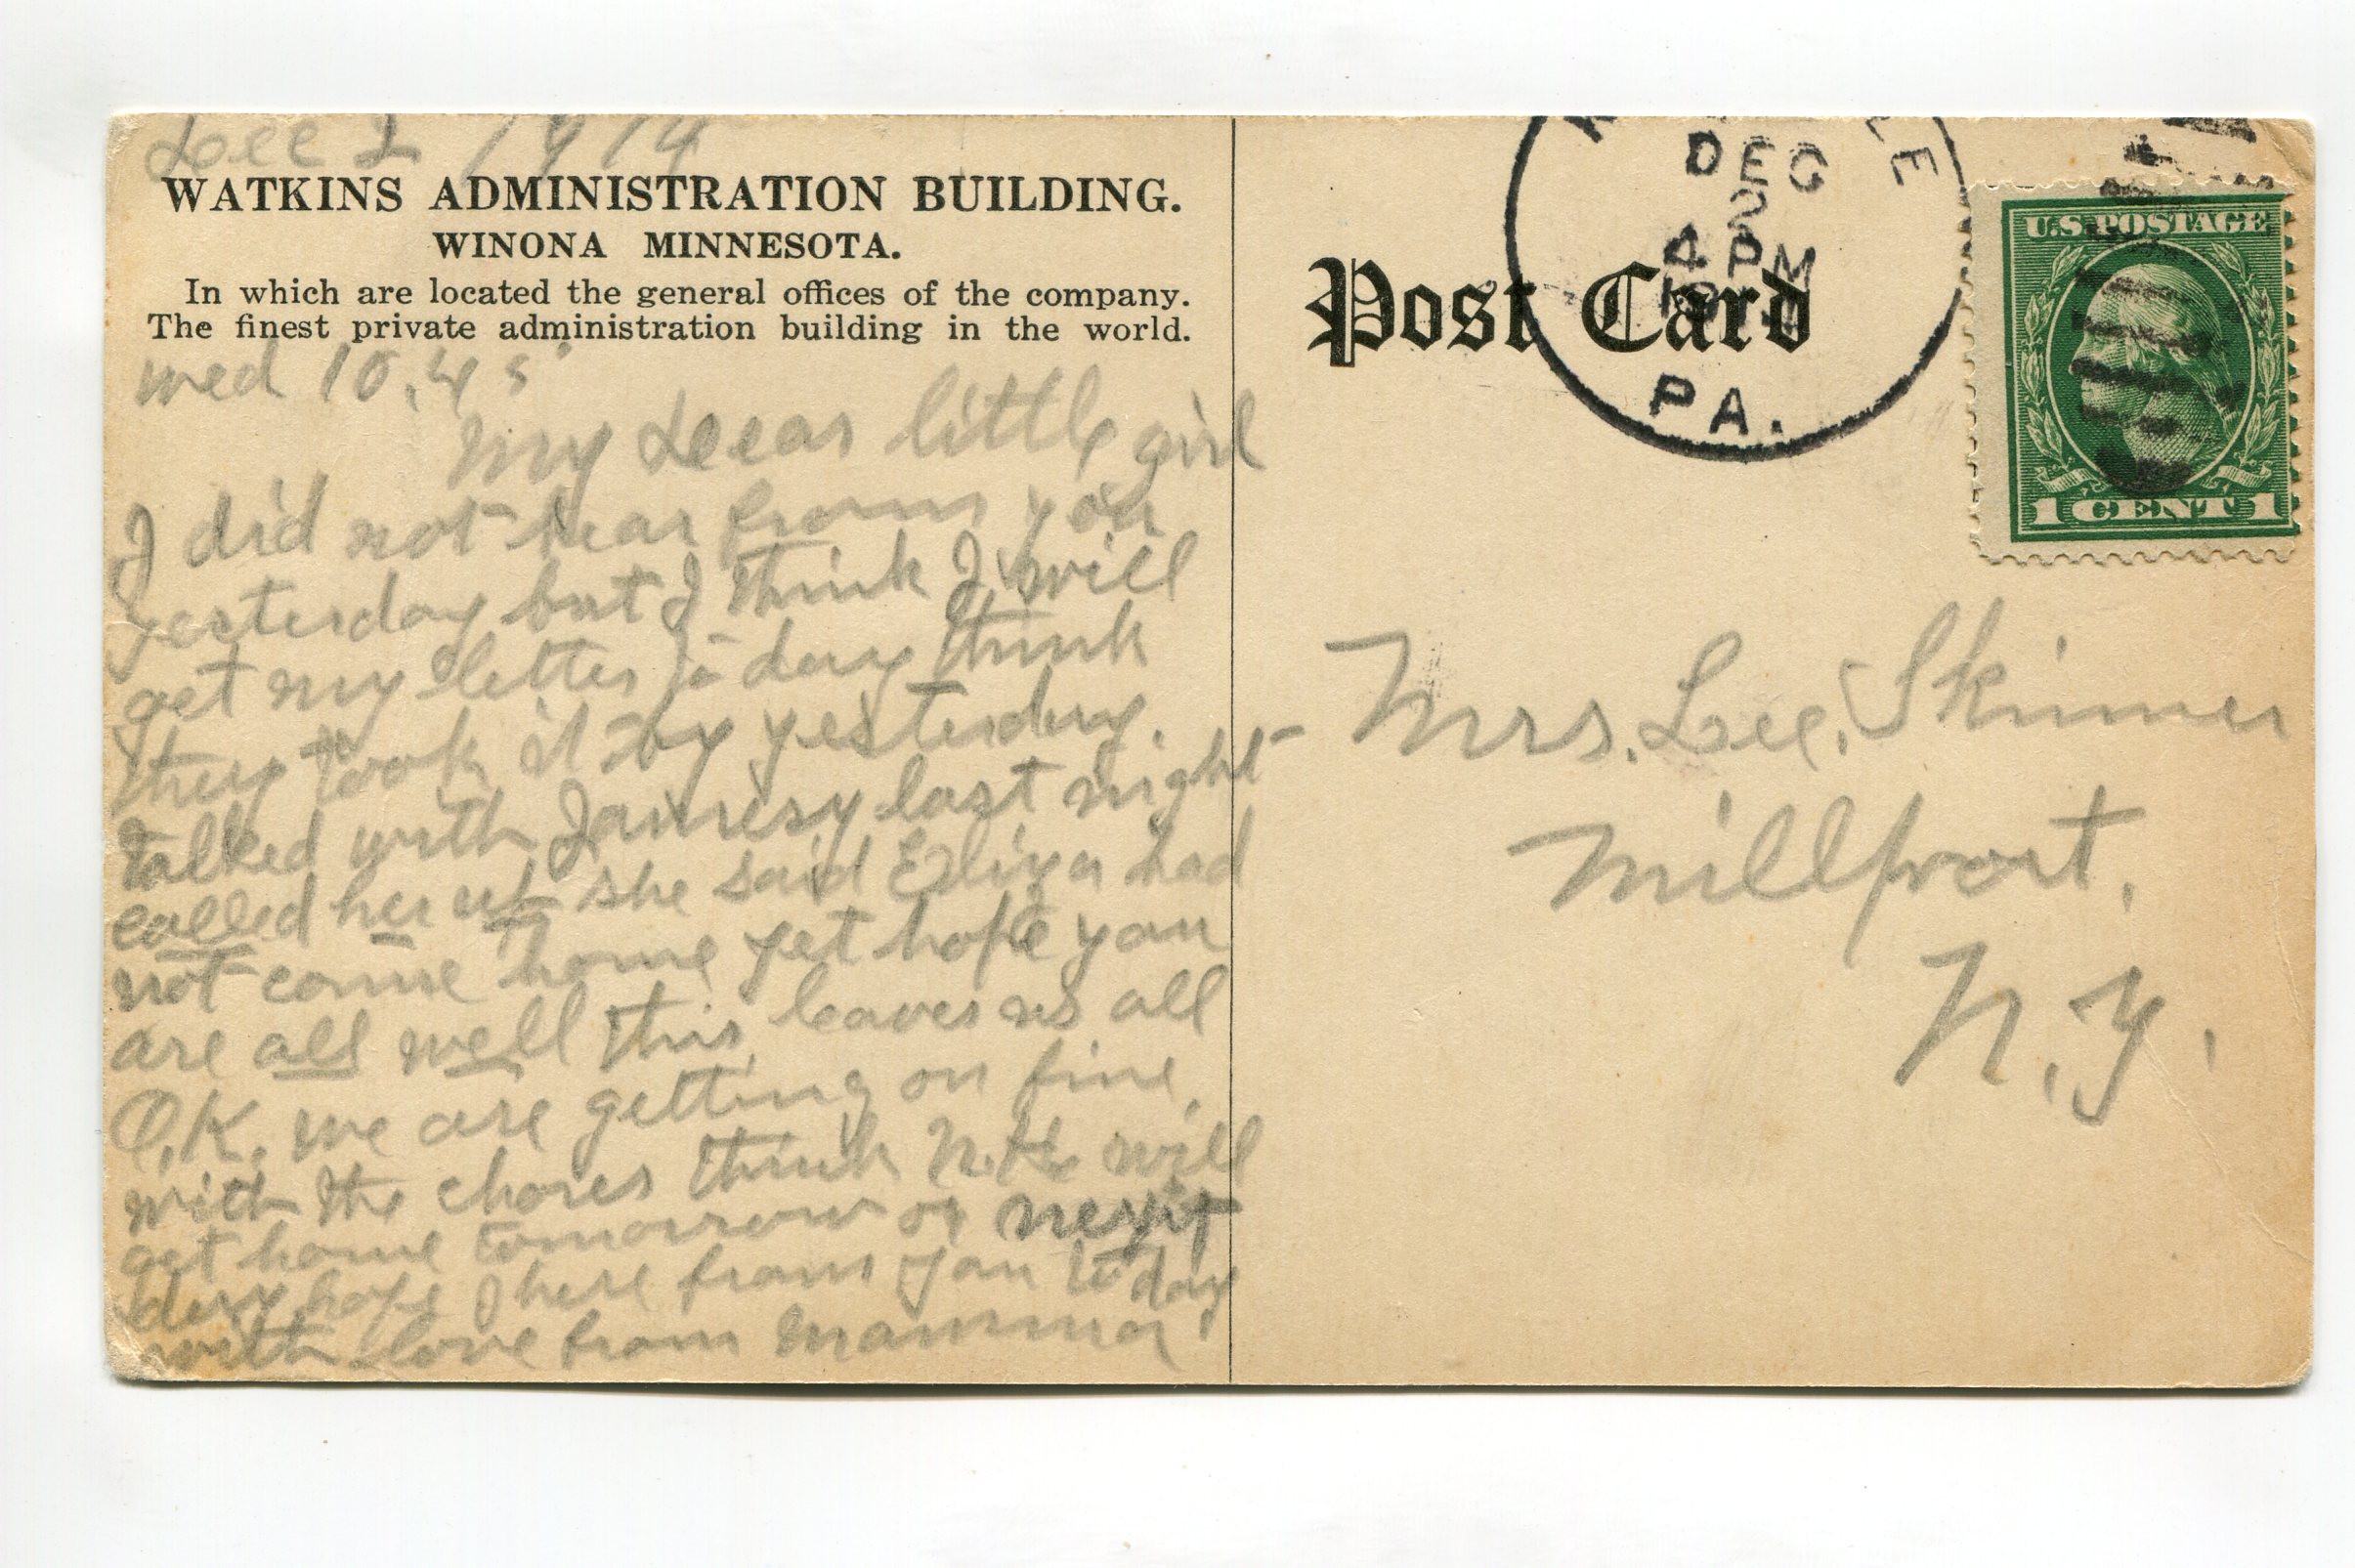 Dec 2 1914
WATKINS ADMINISTRATION BUILDING.
WINONA MINNESOTA.
In which are located the general offices of the company.
The finest private administration building in the world.
wed 10.45
My Deear little girl
I did not hear from you
yesterday but I think I will
get my letter to day think
they took it by yesterday.
talked with Jamesy last night
called her up she said Eliza had
not come home yet hope you
are all well this leaves us all
O.K. we are getting on fine
with the chores think N.H. will
get home tomorrow or next
day hope I here from you to day
with love from Mamma
Post Card
LE
DEC
2
4 PM
PA.
U.S. POSTAGE
1 CENT 1
Mrs. Lee. Skinner
Millport.
N.Y.